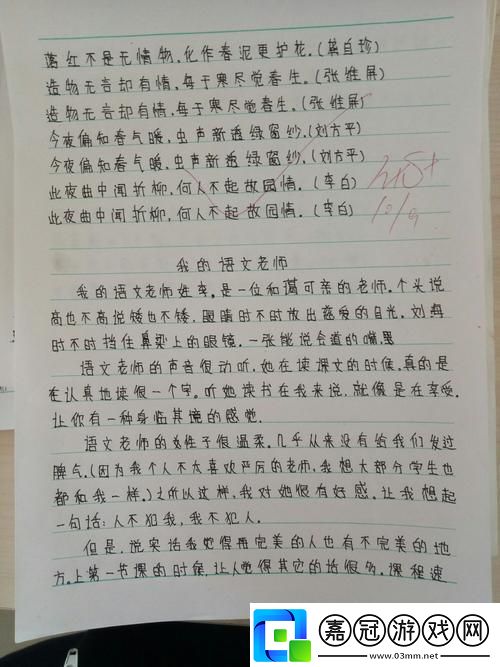 落红不是无情物,化作春泥更护花.(龚自珍)
造物无言却有情,每于寒尽觉春生.(张维屏)
造物无言却有情,每于寒尽觉春生.(张维屏)
今夜偏知春气暖,虫声新透绿窗纱.(刘方平)
今夜偏知春气暖,虫声新透绿窗纱.(刘方平)
此夜曲中闻折柳,何人不起故园情.(李白)
此夜曲中闻折柳,何人不起故园情.(李白)
10/9
我的语文老师
我的语文老师姓李,是一位和蔼可亲的老师.个头说
高也不高说矮也不矮,眼睛时不时放出慈爱的目光.刘海
时不时挡住鼻梁上的眼镜.一张能说会道的嘴
语文老师的声音很动听,她在读课文的时候,真的是
在认真地读很一个字.听她读书在我来说,就像是在享受.
让你有一种身临其境的感觉.
语文老师的性子很温柔.几乎从来没有给我们发过
脾气.(因为我个人不太喜欢严厉的老师,我想大部分学生也
都和我一样.)之所以这样,我对她很有好感.让我想起
一句话:人不犯我,我不犯人.
但是,说实话我觉得再完美的人也有不完美的地
方.上第一节课的时候,让人觉得其它的话很多.课程速
嘉冠游戏网
www.03mm.net